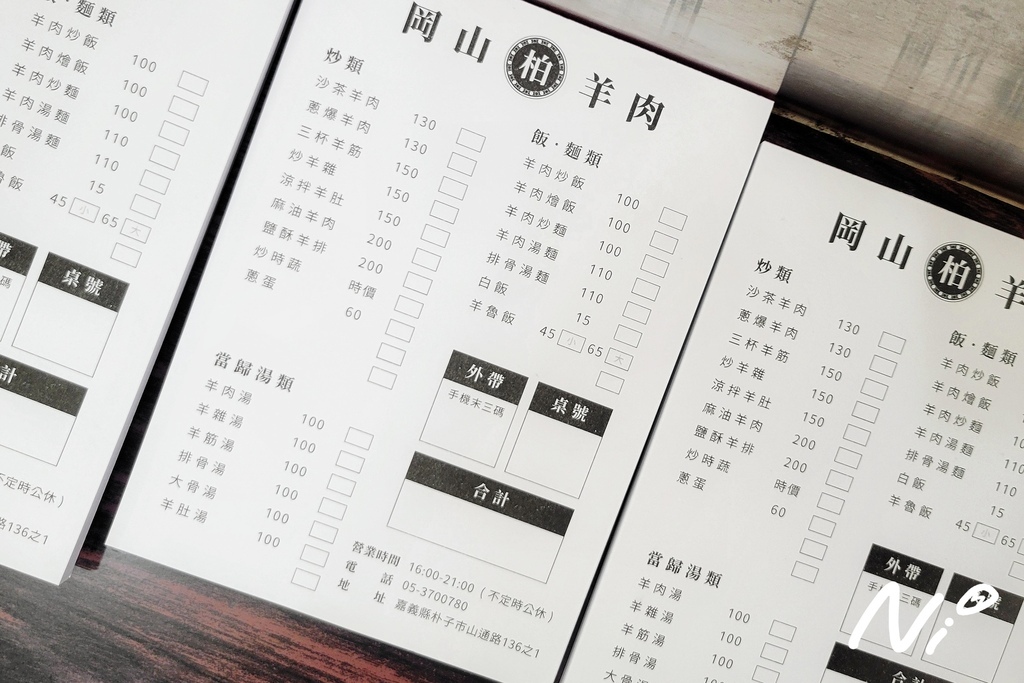 飯·麵類
羊肉炒飯 100
羊肉燴飯 100
羊肉炒麵 100
羊肉湯麵 110
排骨湯麵 110
飯 15
魯飯 45 小 65 大
帶
碼
桌號
計
不定時公休）
路136之1
岡山 柏 羊肉
炒類
沙茶羊肉 130
蔥爆羊肉 130
三杯羊筋 150
炒羊雜 150
涼拌羊肚 150
麻油羊肉 200
鹽酥羊排 200
炒時蔬 時價
蔥蛋 60
當歸湯類
羊肉湯 100
羊雜湯 100
羊筋湯 100
排骨湯 100
大骨湯 100
羊肚湯 100
飯·麵類
羊肉炒飯 100
羊肉燴飯 100
羊肉炒麵 100
羊肉湯麵 110
排骨湯麵 110
白飯 15
羊魯飯 45 小 65 大
外帶
手機末三碼
桌號
合計
營業時間 16:00-21:00（不定時公休）
電話 05-3700780
地址 嘉義縣朴子市山通路136之1
岡山 柏 羊
炒類
沙茶羊肉 130
蔥爆羊肉 130
三杯羊筋 150
炒羊雜 150
涼拌羊肚 200
麻油羊肉 200
鹽酥羊排 時價
炒時蔬 60
蔥蛋
當歸湯類
羊肉湯 100
羊雜湯 100
羊筋湯 100
排骨湯
大骨湯
飯·麵類
羊肉炒飯
羊肉燴飯
羊肉炒麵
羊肉湯麵
排骨湯麵
白飯 15
羊魯飯 45 小 65
外帶
合計
Ni